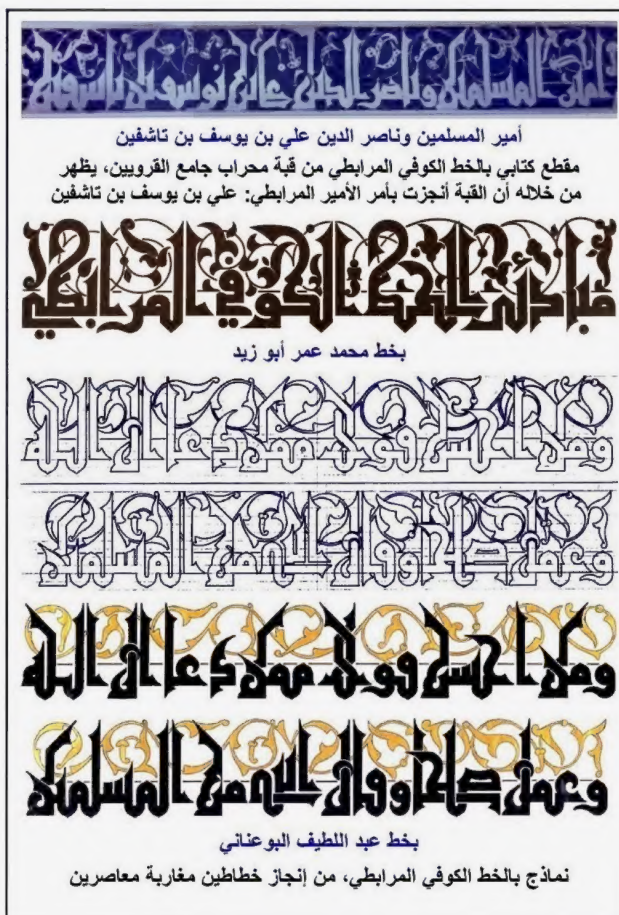 امير المسلمين وناصر الدين علي بن يوسف بن تاشفين
أمير المسلمين وناصر الدين علي بن يوسف بن تاشفين
مقطع كتابي بالخط الكوفي المرابطي من قبة محراب جامع القرويين، يظهر
من خلاله أن القبة أنجزت بأمر الأمير المرابطي: علي بن يوسف بن تاشفين
مبادئ الخط الكوفي المرابطي
بخط محمد عمر أبو زيد
ومن احسن قولا ممن دعا الى الله
وعمل صالحا وقال انني من المسلمين
ومن احسن قولا ممن دعا الى الله
وعمل صالحا وقال انني من المسلمين
بخط عبد اللطيف البوعناني
نماذج بالخط الكوفي المرابطي، من إنجاز خطاطين مغاربة معاصرين